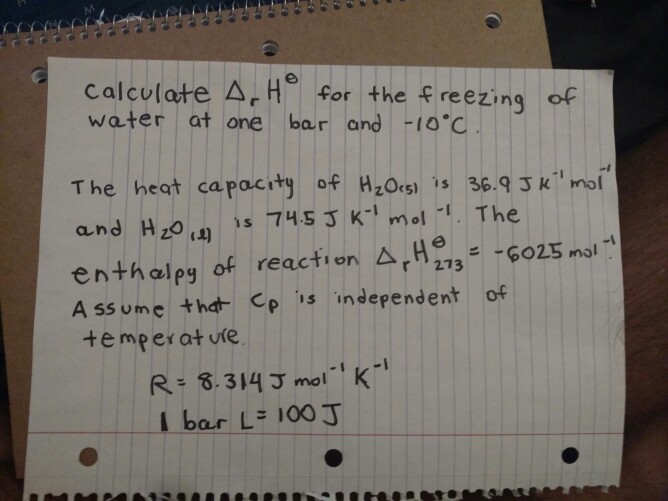 Calculate ΔrH⊖ for the freezing of
water at one bar and -10°C.
The heat capacity of H2O(s) is 36.9 J K⁻¹ mol⁻¹
and H2O(l) is 74.5 J K⁻¹ mol⁻¹. The
enthalpy of reaction ΔrH⊖273 = -6025 mol⁻¹.
Assume that Cp is independent of
temperature.
R = 8.314 J mol⁻¹ K⁻¹
1 bar L = 100 J